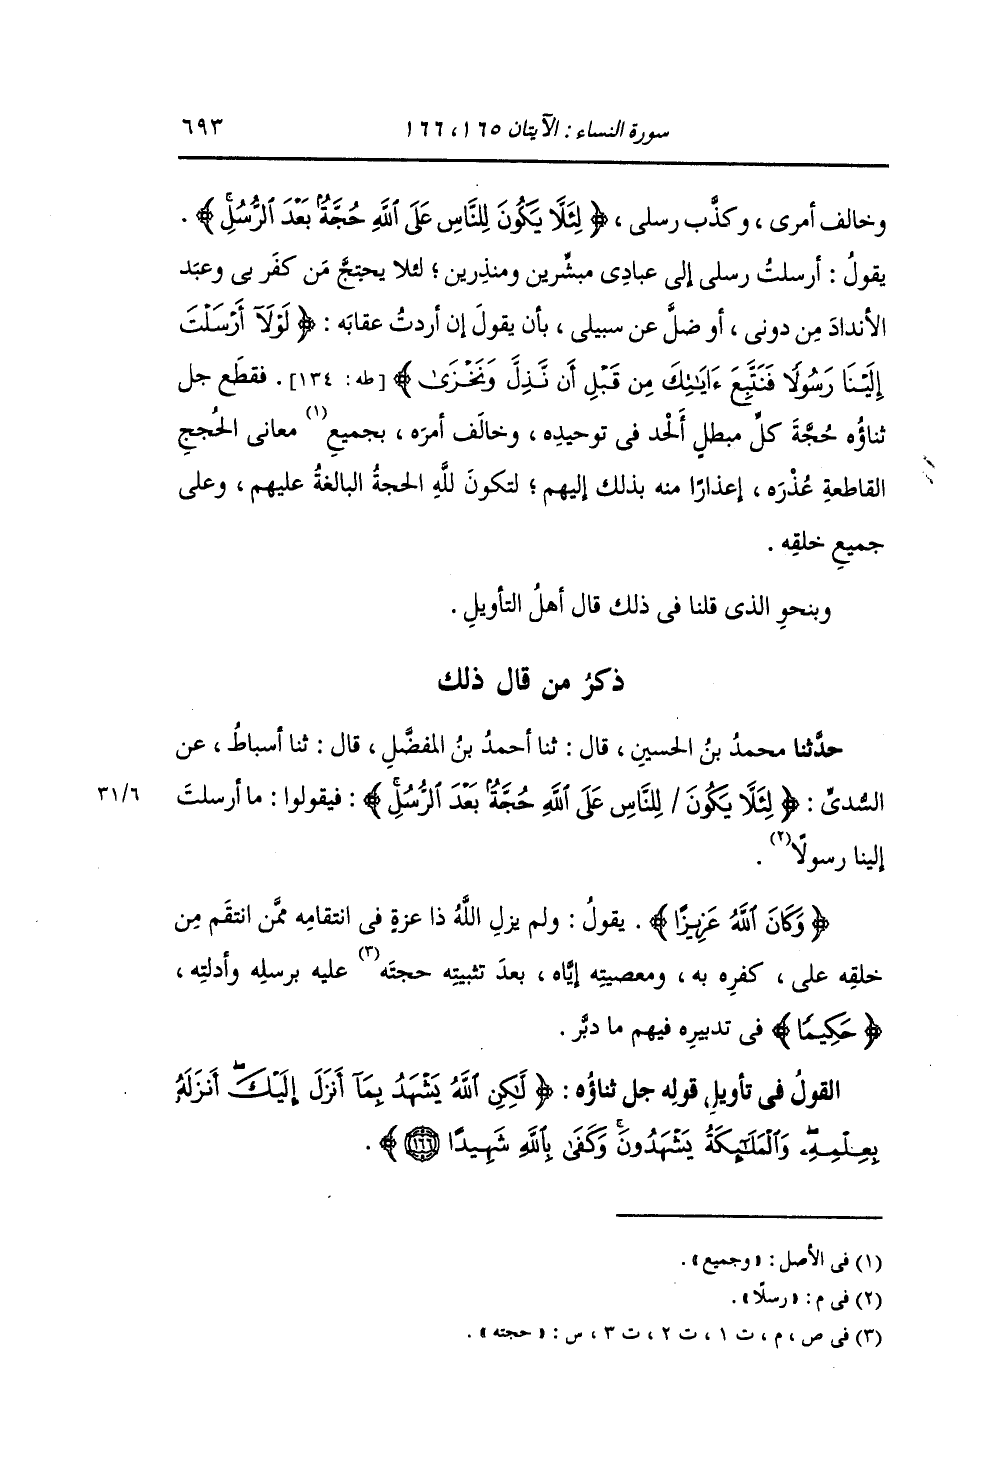 سورة النساء : الآيتان ١٦٥ ، ١٦٦ ٦٩٣
وخالف أمرى ، وكذَّب رسلى ، ﴿ لِئَلَّا يَكُونَ لِلنَّاسِ عَلَى ٱللَّهِ حُجَّةٌۢ بَعْدَ ٱلرُّسُلِۚ ﴾ .
يقولُ : أرسلتُ رسلى إلى عبادِى مبشِّرين ومنذِرين ؛ لئلا يحتجَّ مَن كفَر بى وعبَد
الأندادَ مِن دونى ، أو ضلَّ عن سبيلى ، بأن يقولَ إن أردتُ عقابَه : ﴿ لَوْلَآ أَرْسَلْتَ
إِلَيْنَا رَسُولًا فَنَتَّبِعَ ءَايَٰتِكَ مِن قَبْلِ أَن نَّذِلَّ وَنَخْزَىٰ ﴾ [طه : ١٣٤] . فقطَع جل
ثناؤُه حُجَّةَ كلِّ مبطلٍ أَلْحد فى توحيدِه ، وخالَف أمرَه ، بجميعِ(١) معانى الحُججِ
القاطعةِ عُذْرَه ، إعذارًا منه بذلك إليهم ؛ لتكونَ للَّهِ الحجةُ البالغةُ عليهم ، وعلى
جميعِ خلقِه .
وبنحوِ الذى قلنا فى ذلك قال أهلُ التأويلِ .
ذكرُ من قال ذلك
حدَّثنا محمدُ بنُ الحسينِ ، قال : ثنا أحمدُ بنُ المفضَّلِ ، قال : ثنا أسباطُ ، عن
السُّدىِّ : ﴿ لِئَلَّا يَكُونَ / لِلنَّاسِ عَلَى ٱللَّهِ حُجَّةٌۢ بَعْدَ ٱلرُّسُلِۚ ﴾ : فيقولوا : ما أرسلتَ ٣١/٦
إلينا رسولًا(٢) .
﴿ وَكَانَ ٱللَّهُ عَزِيزًا ﴾ . يقولُ : ولم يزلِ اللَّهُ ذا عزةٍ فى انتقامِه ممَّن انتقَم مِن
خلقِه على ، كفرِه به ، ومعصيتِه إيَّاه ، بعدَ تثبيتِه حجتَه(٣) عليه برسلِه وأدلتِه ،
﴿ حَكِيمًا ﴾ فى تدبيرِه فيهم ما دبَّر .
القولُ فى تأويلِ قولِه جل ثناؤُه : ﴿ لَٰكِنِ ٱللَّهُ يَشْهَدُ بِمَآ أَنزَلَ إِلَيْكَۖ أَنزَلَهُۥ
بِعِلْمِهِۦۖ وَٱلْمَلَٰٓئِكَةُ يَشْهَدُونَۚ وَكَفَىٰ بِٱللَّهِ شَهِيدًا ١٦٦ ﴾ .
(١) فى الأصل : « وجميع » .
(٢) فى م : « رسلًا » .
(٣) فى ص ، م ، ت ١ ، ت ٢ ، ت ٣ ، س : « حجته » .